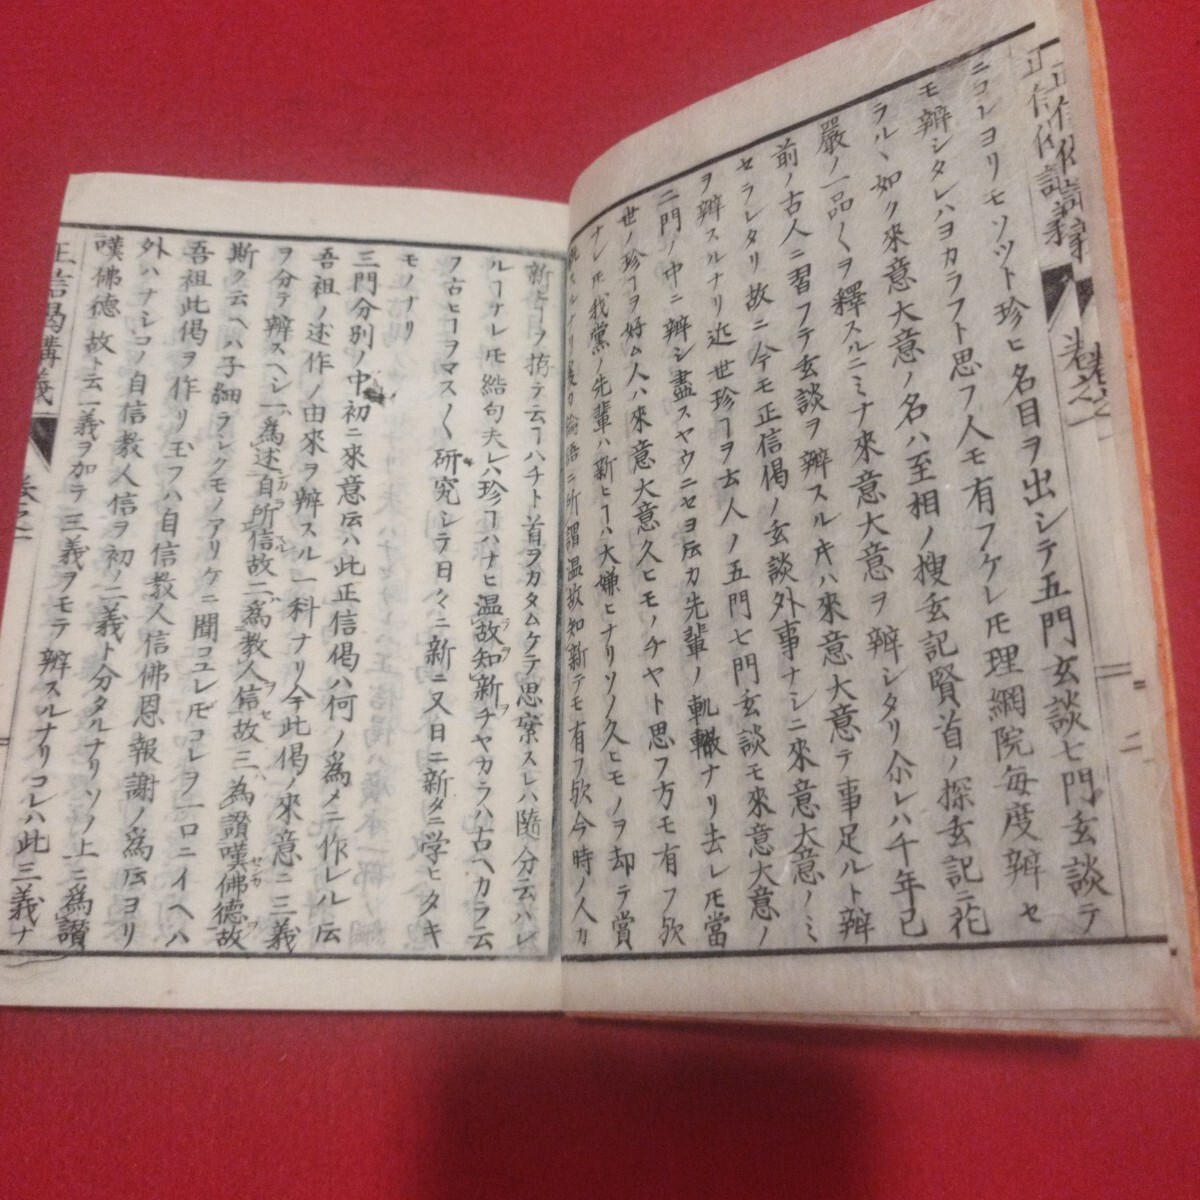 正信偈講義
卷之一
二
ニコレヨリモソツト珍ヒ名目ヲ出シテ五門玄談七門玄談テ
モ辨シタレハヨカラフト思フ人モ有フケレ𪜈理綱院毎度辨セ
ラルヽ如ク來意大意ノ名ハ至相ノ搜玄記賢首ノ探玄記ニ花
嚴ノ一品〱ヲ釋スルニミナ來意大意ヲ辨シタリ尒レハ千年已
前ノ古人ニ習フテ玄談ヲ辨スルキハ來意大意テ事足ルト辨
セラレタリ故ニ今モ正信偈ノ玄談外事ナシニ來意大意ノミ
ヲ辨スルナリ近世珍ヿヲ云人ノ五門七門玄談モ來意大意ノ
二門ノ中ニ辨シ盡スヤウニセヨ𫝂カ先輩ノ軌轍ナリ去レ𪜈當
世ノ珍ヿヲ好ム人ハ來意大意久ヒモノチヤト思フ方モ有フ欤
ナレ𪜈我黨ノ先輩ハ新ヒヿハ大嫌ヒナリソノ久ヒモノヲ却テ賞
論語ニ所謂温故知新テモ有フ欤今時ノ人カ
新ヒ名目ヲ拵テ云ヿハチト首ヲカタムケテ思案スレハ隨分云ハレ
ルヿナレ𪜈結句夫レハ珍ヿハナヒ温故知新チヤカラハ古ヘカラ云
フ古ヒヿヲマス〱研究シテ日々ニ新ニ又日ニ新ダニ学ヒタキ
モノナリ
三門分別ノ中初ニ來意𫝂ハ此正信偈ハ何ノ爲メニ作レル𫝂
吾祖ノ述作ノ由來ヲ辨スル一科ナリ今此偈ノ來意ニ三義
ヲ分テ辨スヘシ一爲述自所信故二爲教人信故三爲讃嘆佛德故
斯ク云ヘハ子細ラシクモノアリケニ聞コユレ𪜈コレヲ一口ニイヘハ
吾祖此偈ヲ作リ玉フハ自信教人信佛恩報謝ノ爲𫝂ヨリ
外ハナシコノ自信教人信ヲ初ノ二義ト分タルナリソノ上ニ爲讃
嘆佛德故ト云一義ヲ加テ三義ヲモテ辨スルナリコレハ此三義ナ
正信偈講義
卷之一